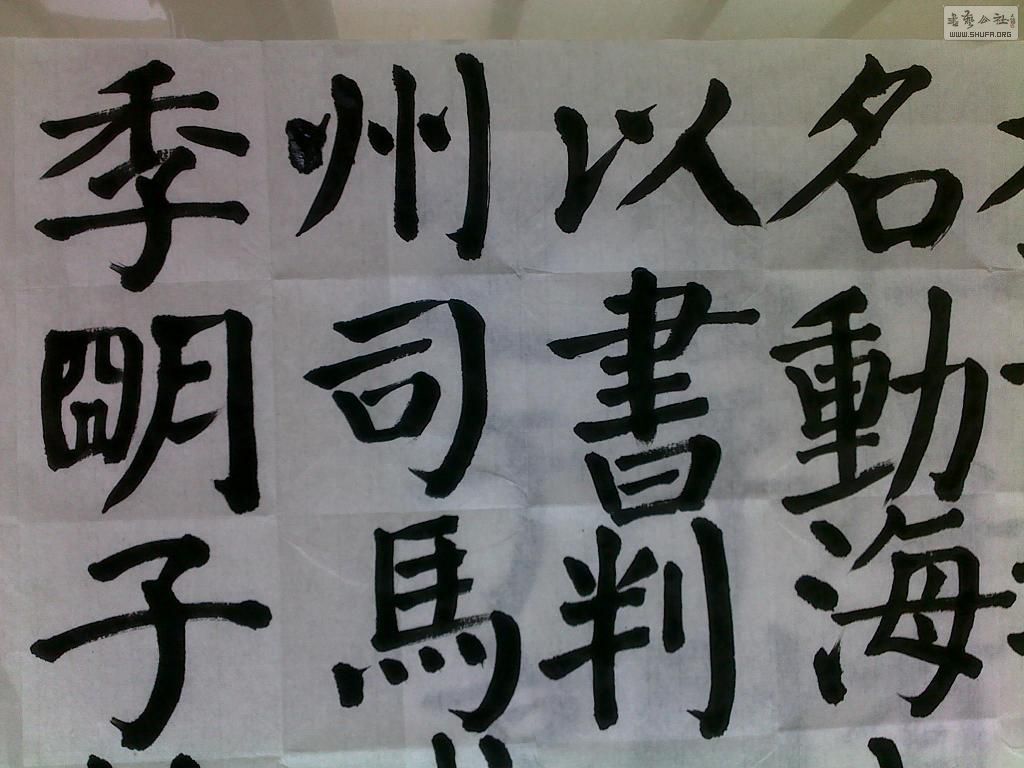 名動海
以書判
州司馬
季明子
書藝公社
WWW.SHUFA.ORG